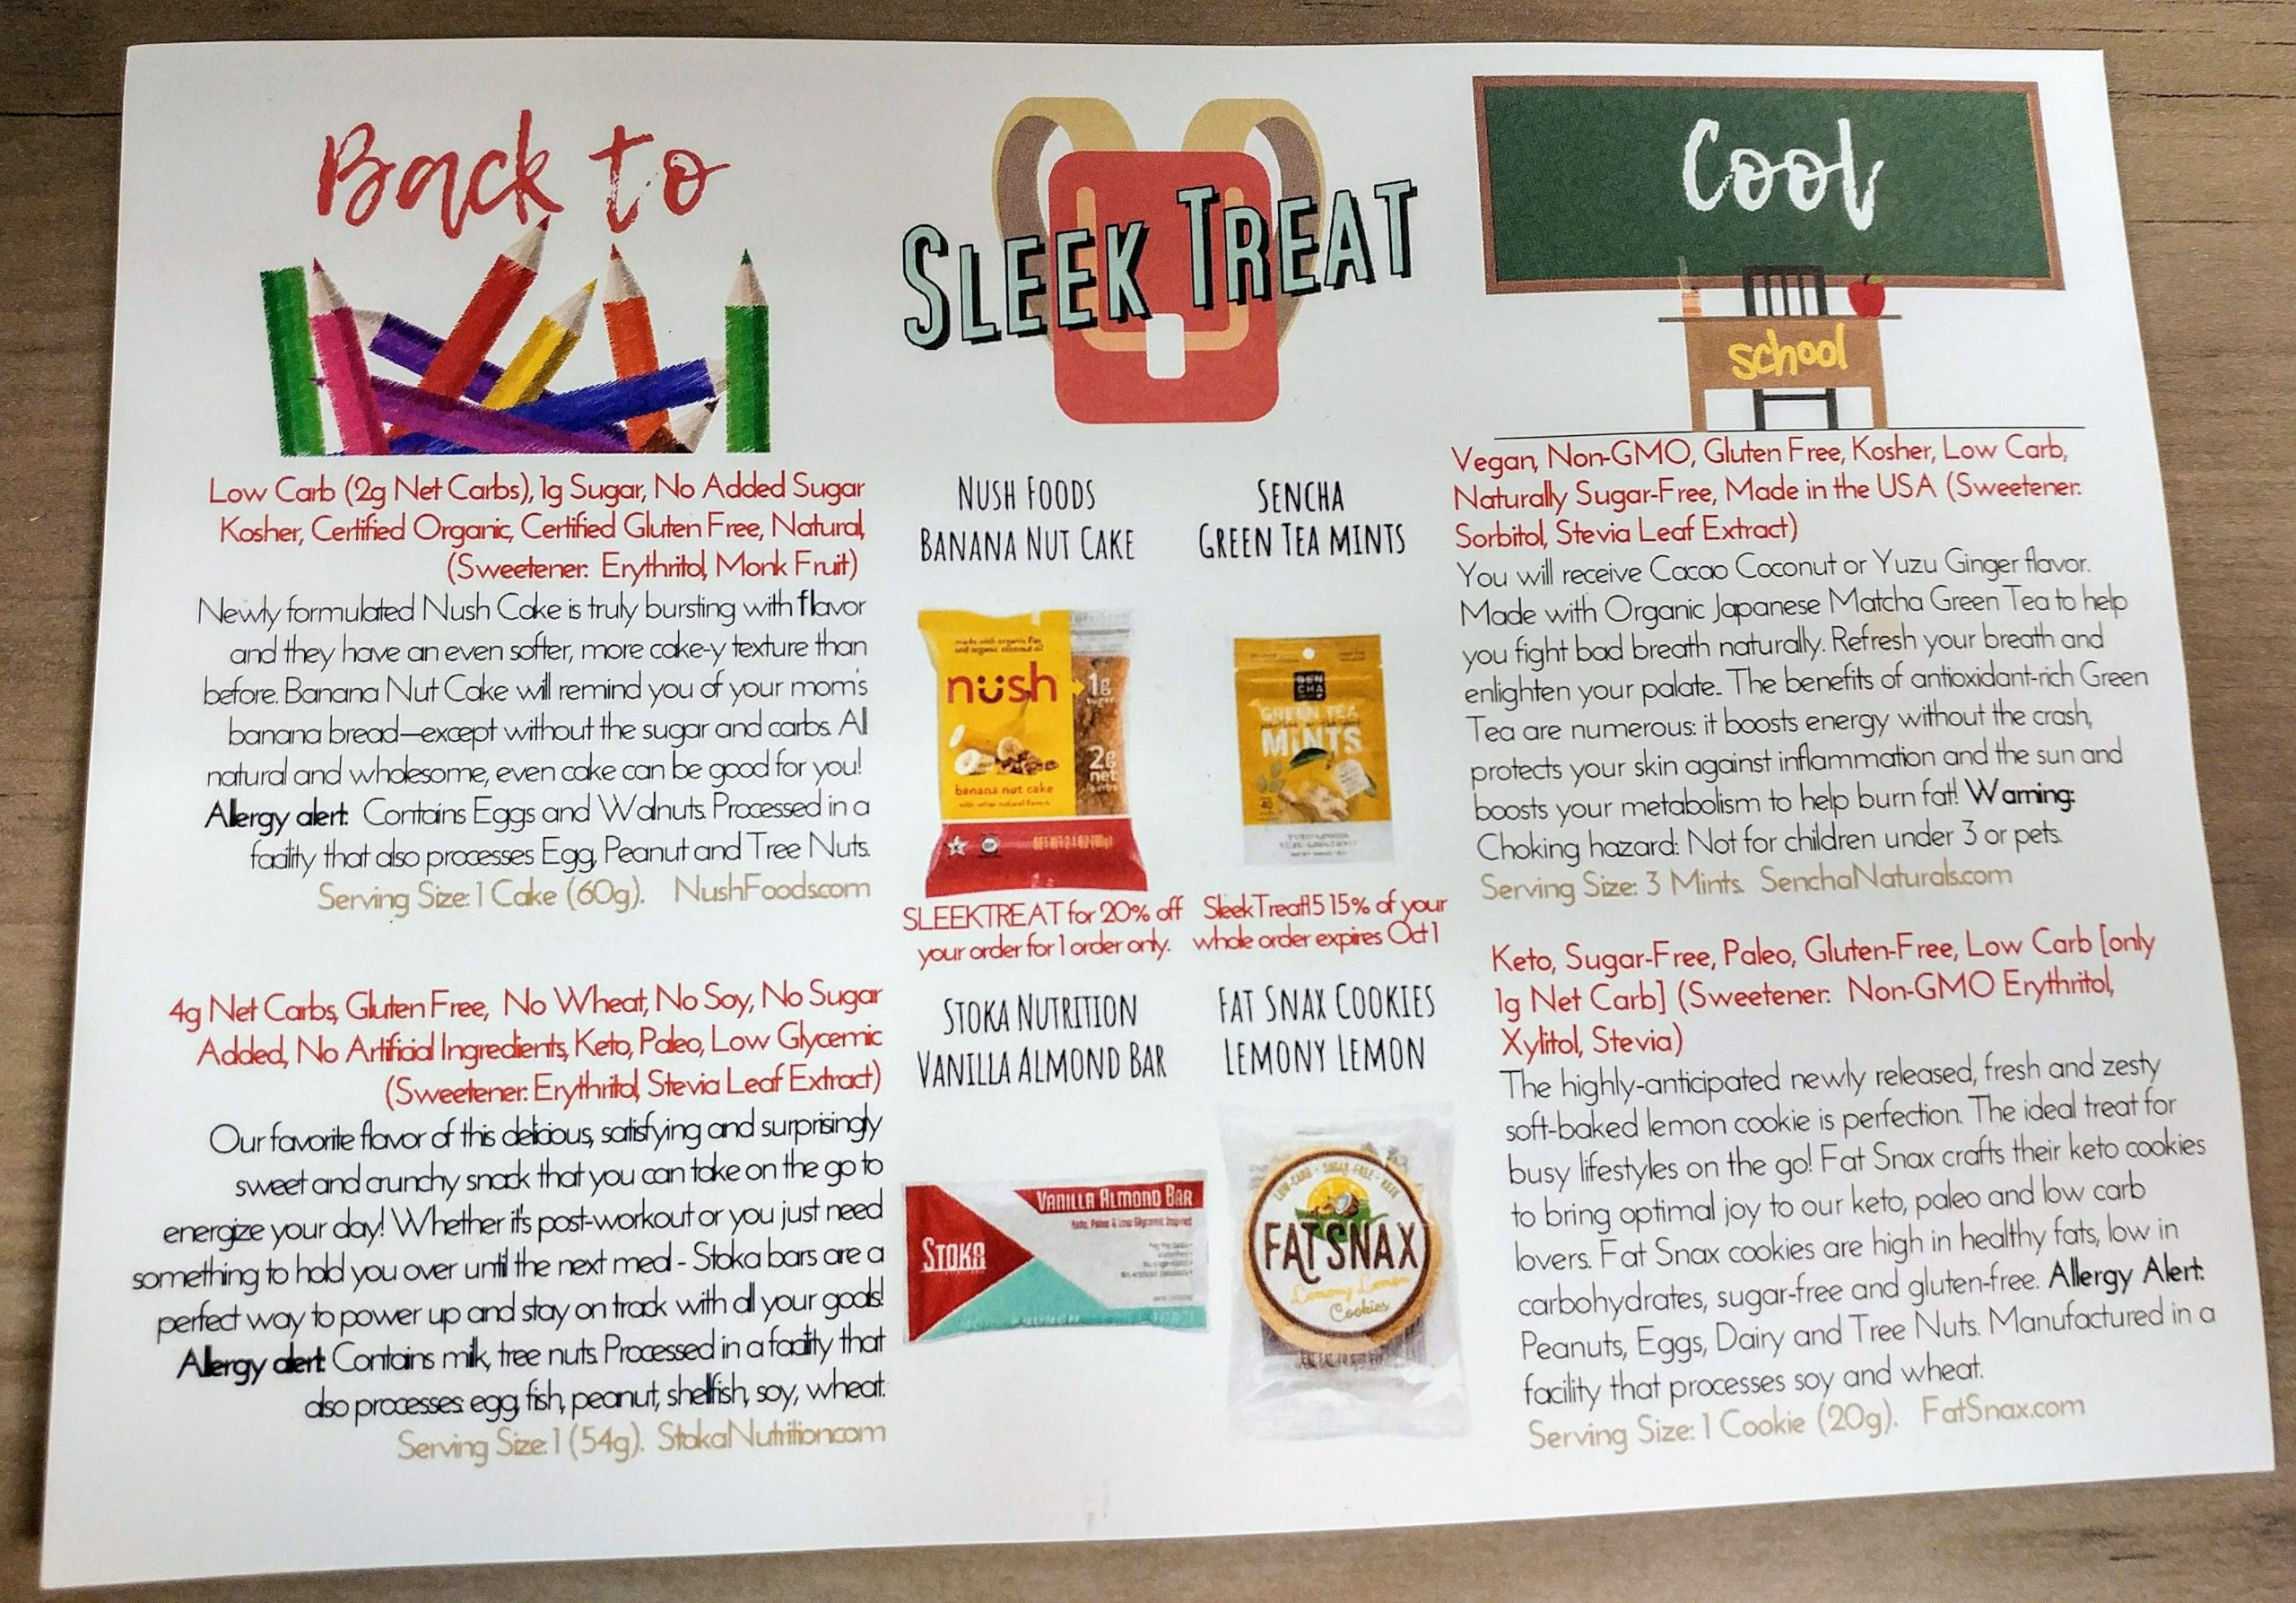 Back to
SLEEK TREAT
Cool
school
Low Carb (2g Net Carbs), 1g Sugar, No Added Sugar
Kosher, Certified Organic, Certified Gluten Free, Natural,
(Sweetener: Erythritol, Monk Fruit)
Newly formulated Nush Cake is truly bursting with flavor
and they have an even softer, more cake-y texture than
before. Banana Nut Cake will remind you of your mom's
banana bread—except without the sugar and carbs. All
natural and wholesome, even cake can be good for you!
Allergy alert: Contains Eggs and Walnuts. Processed in a
facility that also processes Egg, Peanut and Tree Nuts.
Serving Size: 1 Cake (60g). NushFoods.com
NUSH FOODS
BANANA NUT CAKE
made with organic flax
and organic coconut oil
nush
1g
sugar
2g
net
carbs
banana nut cake
with other natural flavors
SLEEKTREAT for 20% off
your order for 1 order only.
SENCHA
GREEN TEA MINTS
SEN
CHA
GREEN TEA
MINTS
YUZU GINGER
SleekTreat15 15% of your
whole order expires Oct 1
Vegan, Non-GMO, Gluten Free, Kosher, Low Carb,
Naturally Sugar-Free, Made in the USA (Sweetener:
Sorbitol, Stevia Leaf Extract)
You will receive Cacao Coconut or Yuzu Ginger flavor.
Made with Organic Japanese Matcha Green Tea to help
you fight bad breath naturally. Refresh your breath and
enlighten your palate.. The benefits of antioxidant-rich Green
Tea are numerous: it boosts energy without the crash,
protects your skin against inflammation and the sun and
boosts your metabolism to help burn fat! Warning:
Choking hazard: Not for children under 3 or pets.
Serving Size: 3 Mints. SenchaNaturals.com
4g Net Carbs, Gluten Free, No Wheat, No Soy, No Sugar
Added, No Artificial Ingredients, Keto, Paleo, Low Glycemic
(Sweetener: Erythritol, Stevia Leaf Extract)
Our favorite flavor of this delicious, satisfying and surprisingly
sweet and crunchy snack that you can take on the go to
energize your day! Whether it's post-workout or you just need
something to hold you over until the next meal - Stoka bars are a
perfect way to power up and stay on track with all your goals!
Allergy alert: Contains milk, tree nuts. Processed in a facility that
also processes: egg, fish, peanut, shellfish, soy, wheat.
Serving Size: 1 (54g). StokaNutrition.com
STOKA NUTRITION
VANILLA ALMOND BAR
VANILLA ALMOND BAR
Keto, Paleo & Low Glycemic Inspired
STOKA
FAT SNAX COOKIES
LEMONY LEMON
LOW-CARB • SUGAR-FREE • KETO
FATSNAX
Lemony Lemon
Cookies
Keto, Sugar-Free, Paleo, Gluten-Free, Low Carb [only
1g Net Carb] (Sweetener: Non-GMO Erythritol,
Xylitol, Stevia)
The highly-anticipated newly released, fresh and zesty
soft-baked lemon cookie is perfection. The ideal treat for
busy lifestyles on the go! Fat Snax crafts their keto cookies
to bring optimal joy to our keto, paleo and low carb
lovers. Fat Snax cookies are high in healthy fats, low in
carbohydrates, sugar-free and gluten-free. Allergy Alert:
Peanuts, Eggs, Dairy and Tree Nuts. Manufactured in a
facility that processes soy and wheat.
Serving Size: 1 Cookie (20g). FatSnax.com